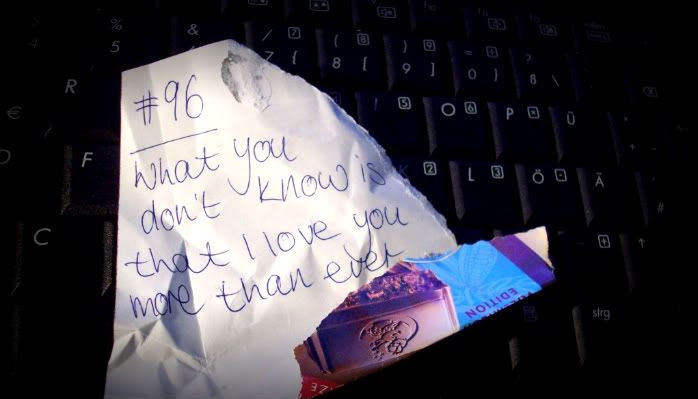 #96
What you
don't know is
that I love you
more than ever
EDITION
ZE
€
5
%
&
/ 7
7 {
( 8
8 [
) 9
9 ]
= 0 }
? ß \
R
5
O 6
P
Ü
F
2
L 3
Ö
Ä
#
C
strg